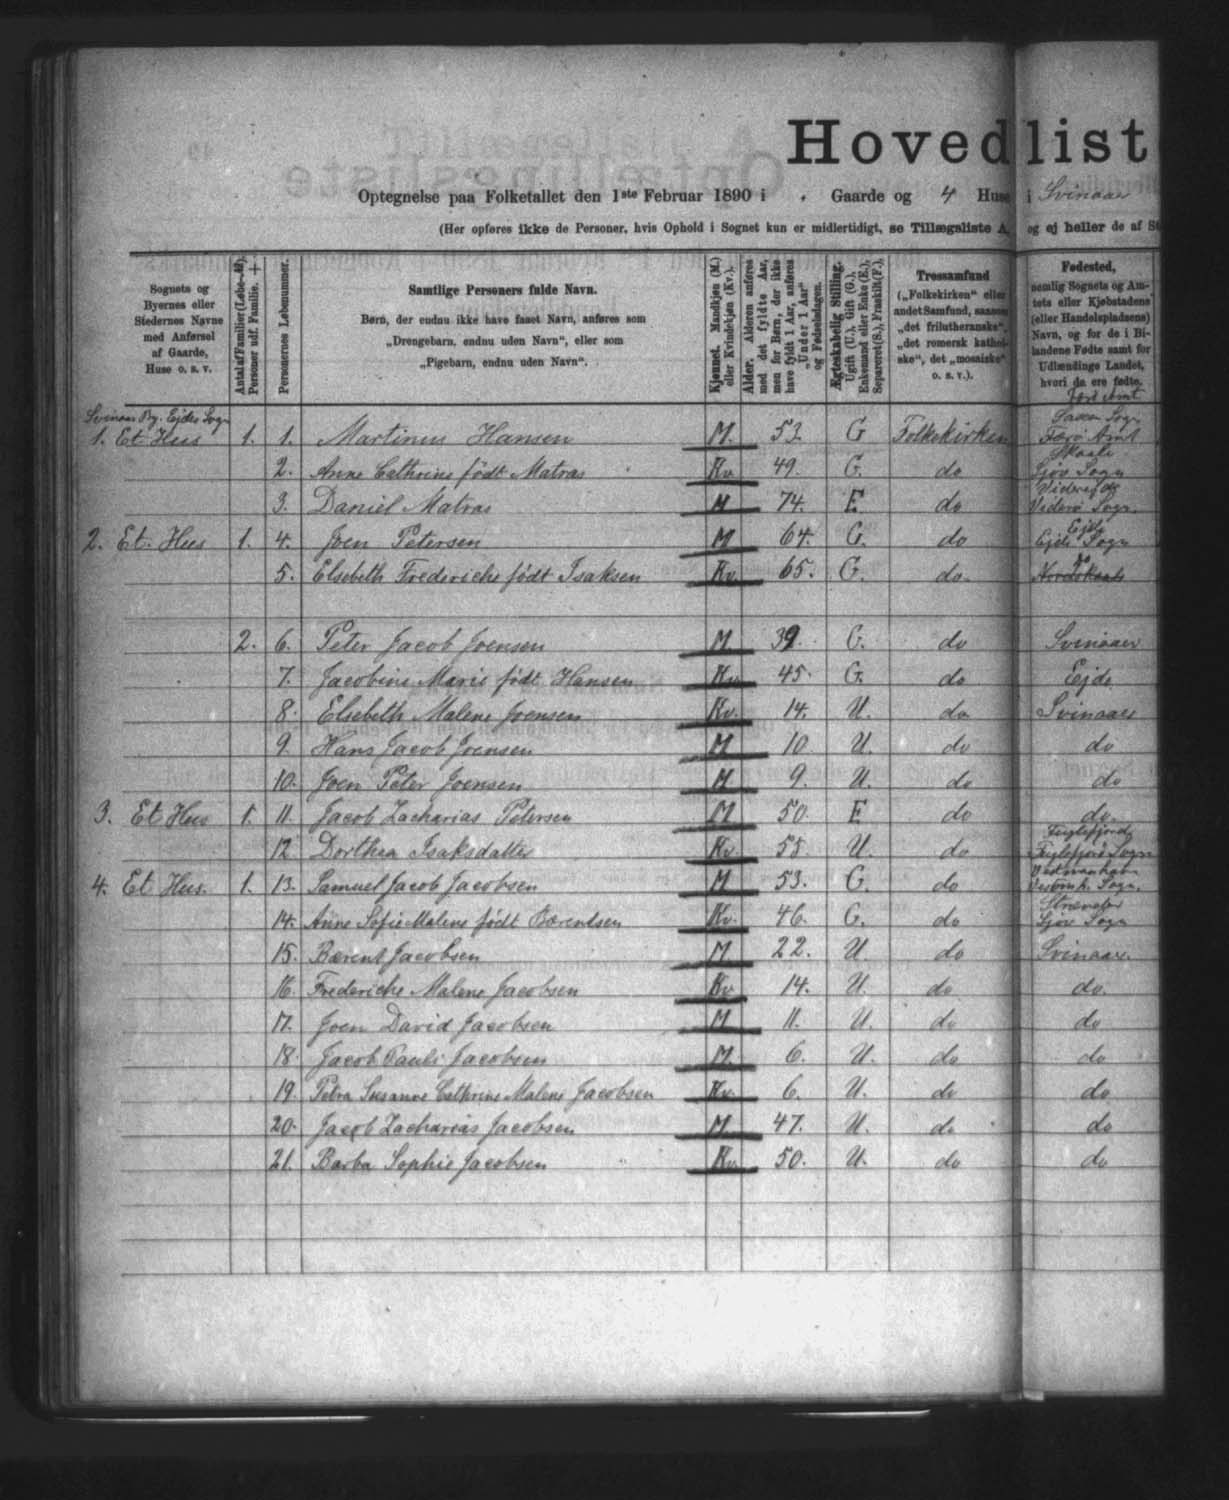 Hovedlist
Optegnelse paa Folketallet den 1ste Februar 1890 i Gaarde og 4 Huse i Svinaar
(Her opføres ikke de Personer, hvis Ophold i Sognet kun er midlertidigt, se Tillægsliste A, og ej heller de af
Sognets og Byernes eller Stedernes Navne med Anførsel af Gaarde, Huse o. s. v.
Antal af Familier (Løbe-№). Personer udf. Familie. +
Personernes Løbenummer.
Samtlige Personers fulde Navn.
Børn, der endnu ikke have faaet Navn, anføres som
„Drengebarn, endnu uden Navn“, eller som
„Pigebarn, endnu uden Navn“.
Kjønnet. Mandkjøn (M.) eller Kvindekjøn (Kv.).
Alder. Alderen anføres med det fyldte Aar, men for Børn, der ikke have fyldt 1 Aar, anføres „Under 1 Aar“ og Fødselsdagen.
Ægteskabelig Stilling. Ugift (U.), Gift (G.), Enkemand eller Enke (E.), Separeret (S.), Fraskilt (F.).
Trossamfund
(„Folkekirken“ eller andet Samfund, saasom „det frilutheranske“, „det romersk katholske“, det „mosaiske“ o. s. v.).
Fødested,
nemlig Sognets og Amtets eller Kjøbstadens (eller Handelspladsens) Navn, og for de i Bilandene Fødte samt for Udlændinge Landet, hvori de ere fødte.
Svinaar By. Ejde Sogn
1. Et Hus 1. 1. Martinus Hansen M. 53 G Folkekirken Sogn Færø Amt
2. Anne Cathrine født Matras Kv. 49. G. do Skaale Sjøv Sogn
3. Daniel Matras M 74. E do Videreide Viderø Sogn.
2. Et Hus 1. 4. Joen Petersen M 64. G. do Ejde Ejde Sogn
5. Elsebeth Frederiche født Isaksen Kv. 65. G. do. do
2. 6. Peter Jacob Joensen M. 39. G. do Svinaaer
7. Jacobine Marie født Hansen Kv. 45. G. do Ejde
8. Elsebeth Malene Joensen Kv. 14. U. do Svinaaer
9. Hans Jacob Joensen M 10 U. do do
10. Joen Peter Joensen M. 9. U. do do
3. Et Hus 1. 11. Jacob Zacharias Petersen M 50. E do do.
12. Dorthea Isaksdatter Kv. 58. U. do Fuglefjord Fuglefjord Sogn
4. Et Hus. 1. 13. Samuel Jacob Jacobsen M 53. G. do Vestmanhavn Vestmh. Sogn.
14. Anne Sofie Malene født Bærentsen Kv. 46. G. do Sjøv Sogn
15. Bærent Jacobsen M. 22. U. do Svinaaer
16. Frederiche Malene Jacobsen Kv 14. U. do do.
17. Joen David Jacobsen M 11. U. do do
18. Jacob Pauli Jacobsen M. 6. U. do do
19. Petra Susanne Cathrine Malene Jacobsen Kv. 6. U. do do
20. Jacob Zacharias Jacobsen M. 47. U. do do
21. Barba Sophie Jacobsen Kv. 50. U. do do